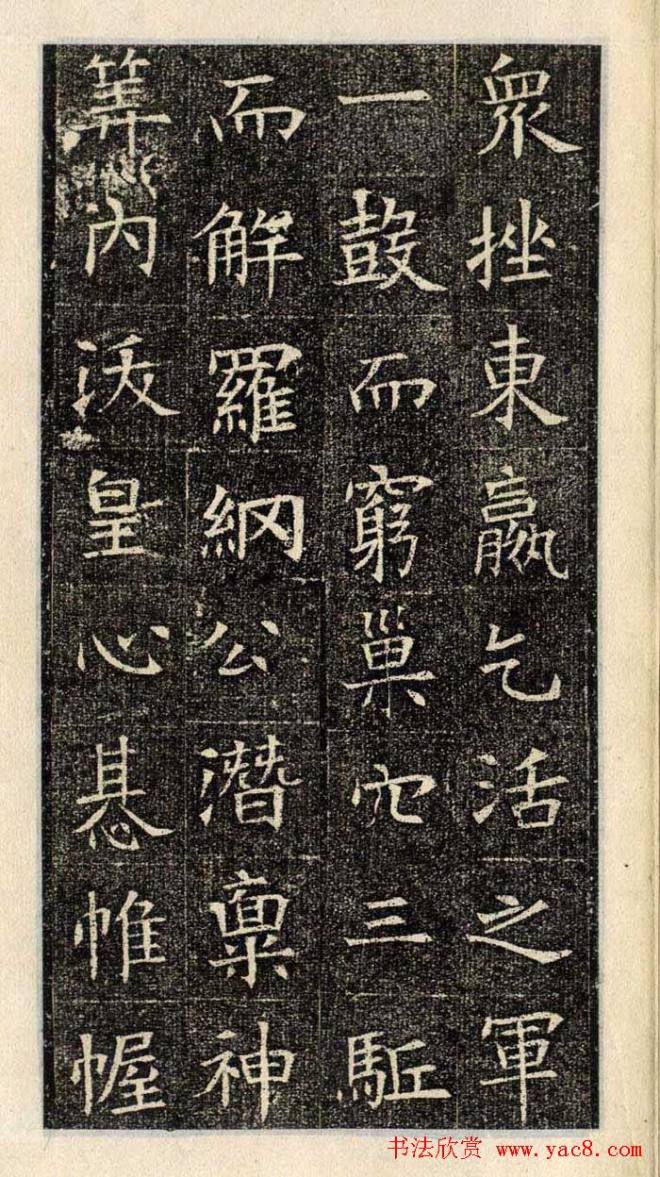 衆挫東嬴乞活之軍
一鼔而窮巢穴三駈
而解羅網公潛稟神
筭内沃皇心惎帷幄
书法欣赏 www.yac8.com